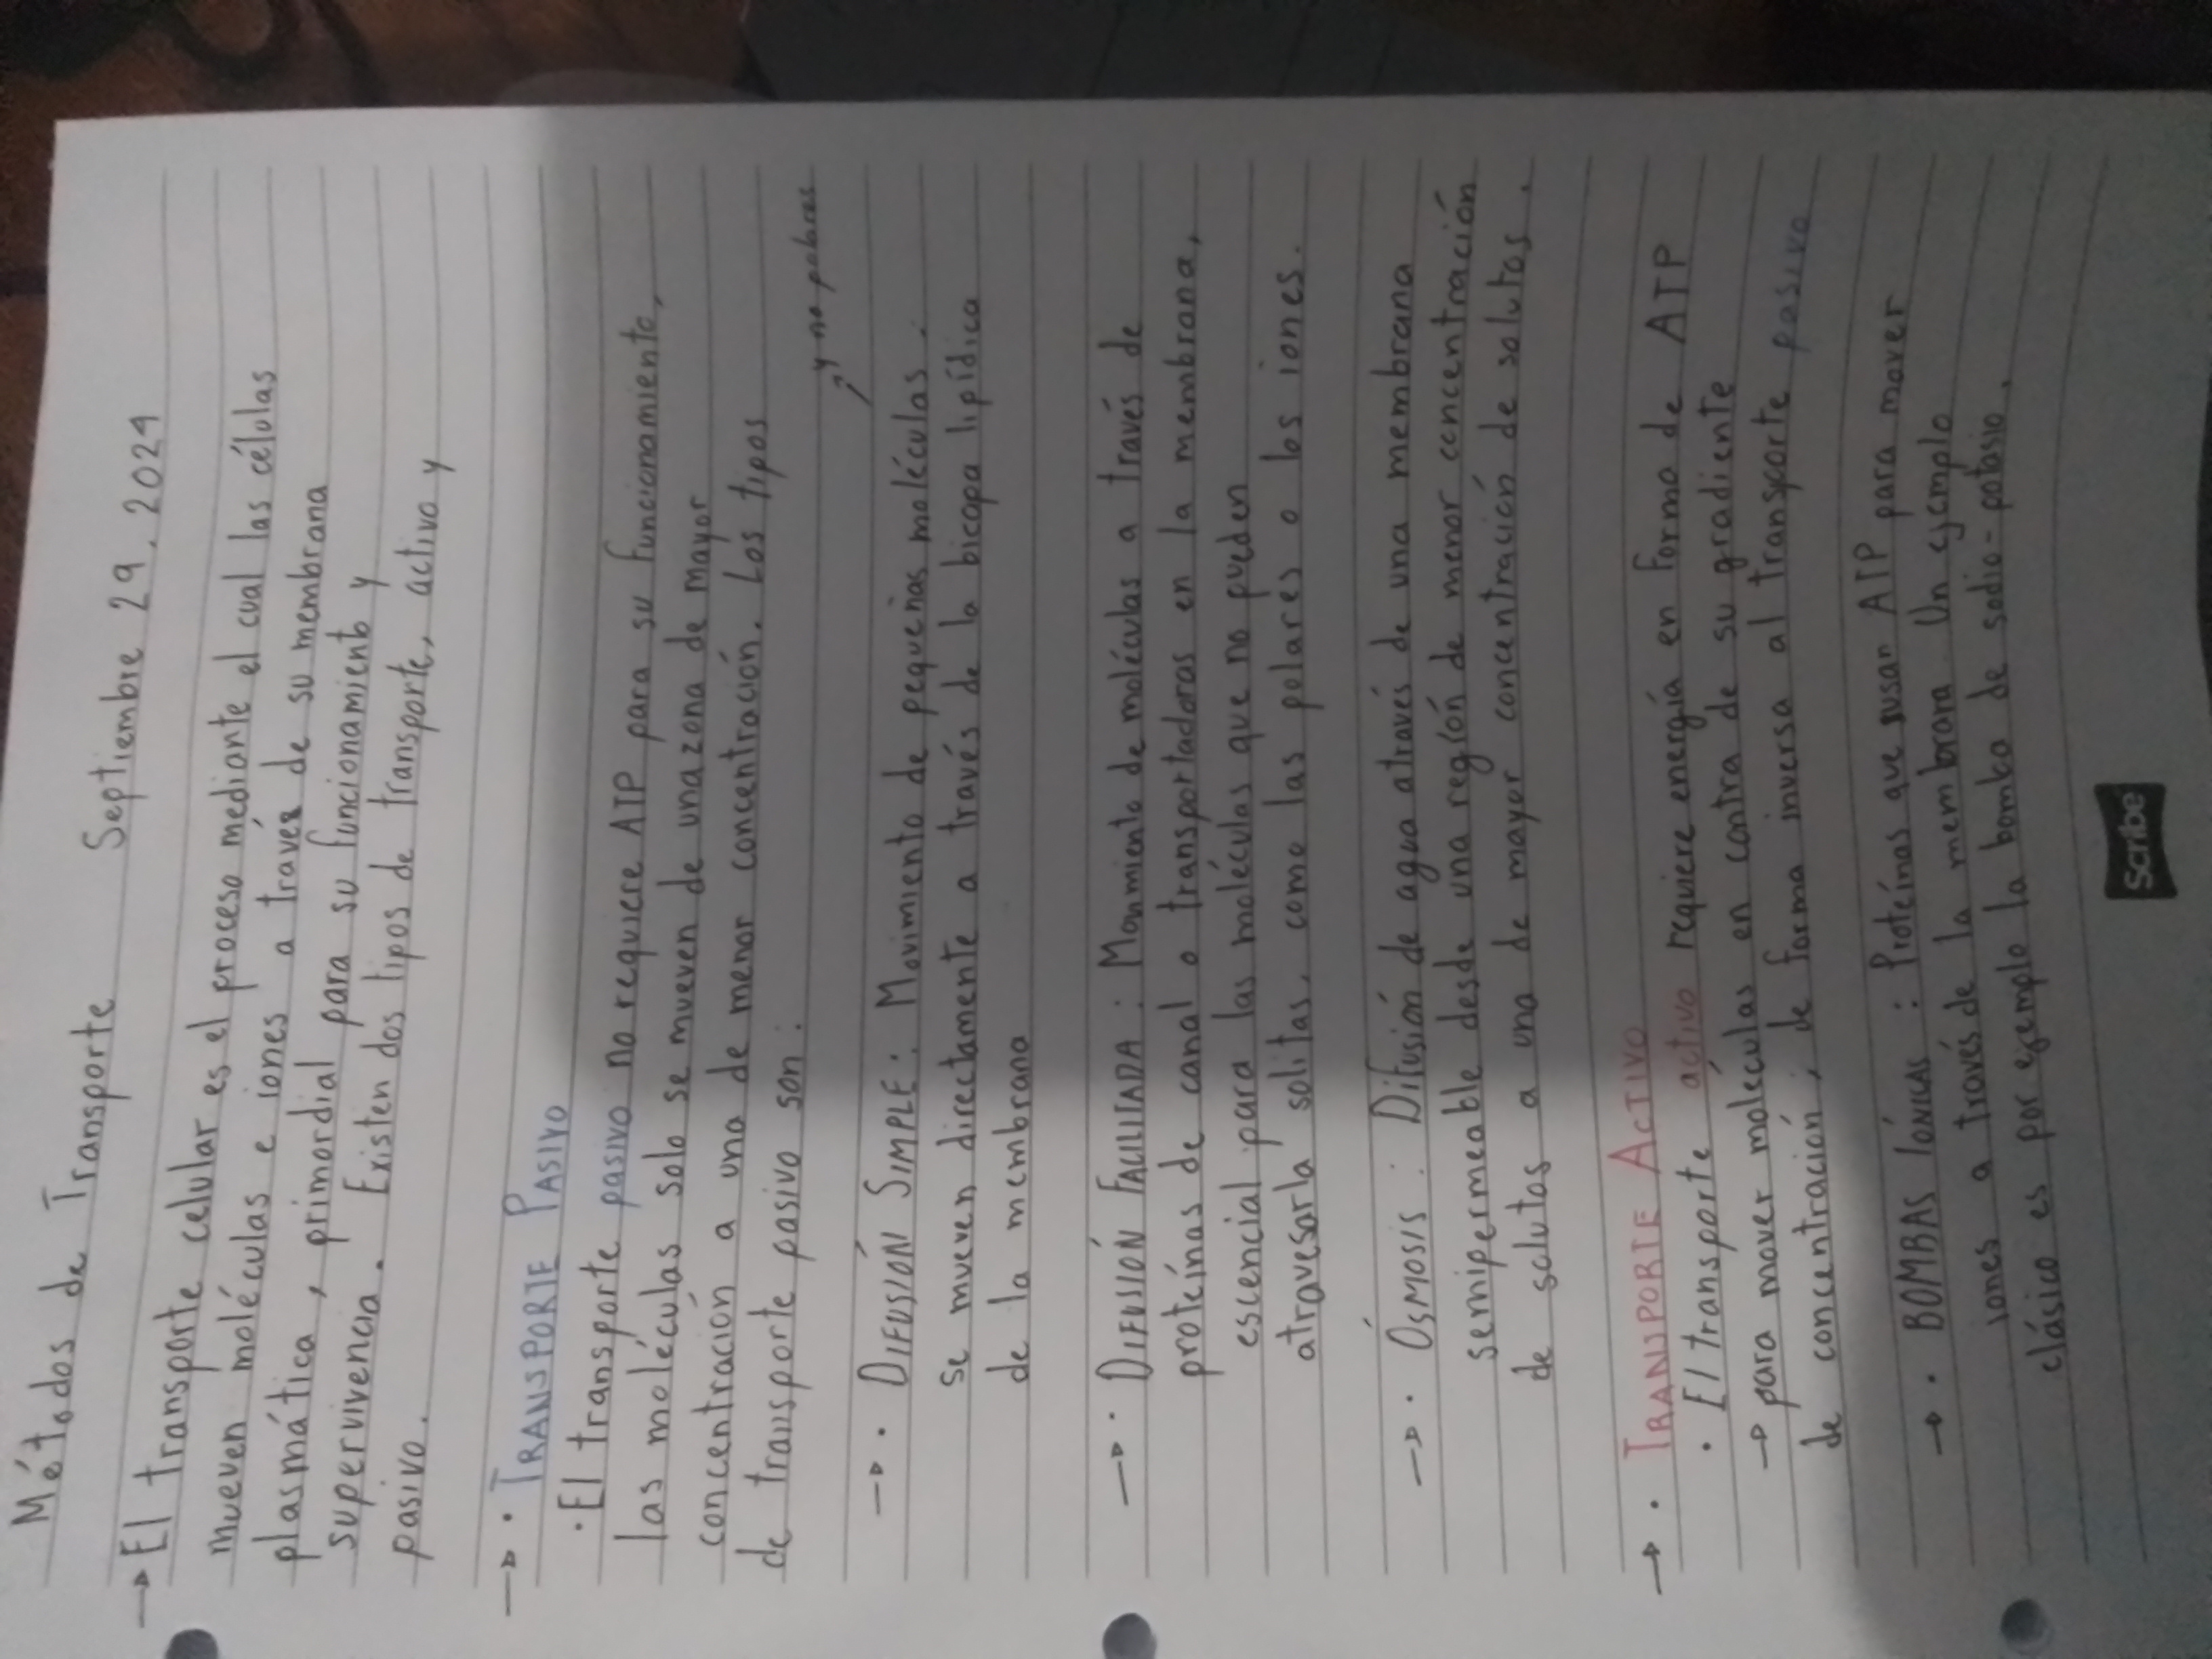 Métodos de Transporte Septiembre 29, 2024
→ El transporte celular es el proceso mediante el cual las células
mueven moléculas e iones a través de su membrana
plasmática, primordial para su funcionamiento y
supervivencia. Existen dos tipos de transporte, activo y
pasivo.
→ • TRANSPORTE PASIVO
• El transporte pasivo no requiere ATP para su funcionamiento,
las moléculas solo se mueven de una zona de mayor
concentración a una de menor concentración. Los tipos
de transporte pasivo son:
y no polares
→ • DIFUSIÓN SIMPLE: Movimiento de pequeñas moléculas.
se mueven directamente a través de la bicapa lipídica
de la membrana
→ • DIFUSIÓN FACILITADA: Movimiento de moléculas a través de
proteínas de canal o transportadoras en la membrana,
escencial para las moléculas que no pueden
atravesarla solitas, como las polares o los iones.
→ • ÓSMOSIS: Difusión de agua através de una membrana
semipermeable desde una región de menor concentración
de solutos a una de mayor concentración de solutos.
→ • TRANSPORTE ACTIVO
• El transporte activo requiere energía en forma de ATP
→ para mover moléculas en contra de su gradiente
de concentración; de forma inversa al transporte pasivo
→ • BOMBAS IÓNICAS: Proteínas que usan ATP para mover
iones a través de la membrana. Un ejemplo
clásico es por ejemplo la bomba de sodio-potasio.
Scribe